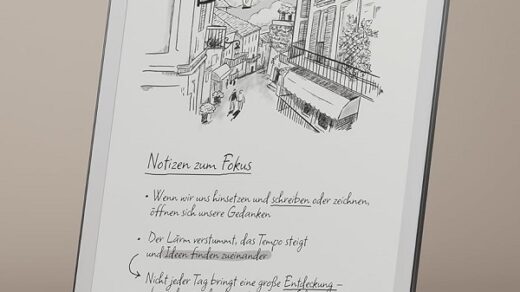 Notizen zum Fokus
• Wenn wir uns hinsetzen und schreiben oder zeichnen,
öffnen sich unsere Gedanken
• Der Lärm verstummt, das Tempo steigt
und Ideen finden zueinander
Nicht jeder Tag bringt eine große Entdeckung –